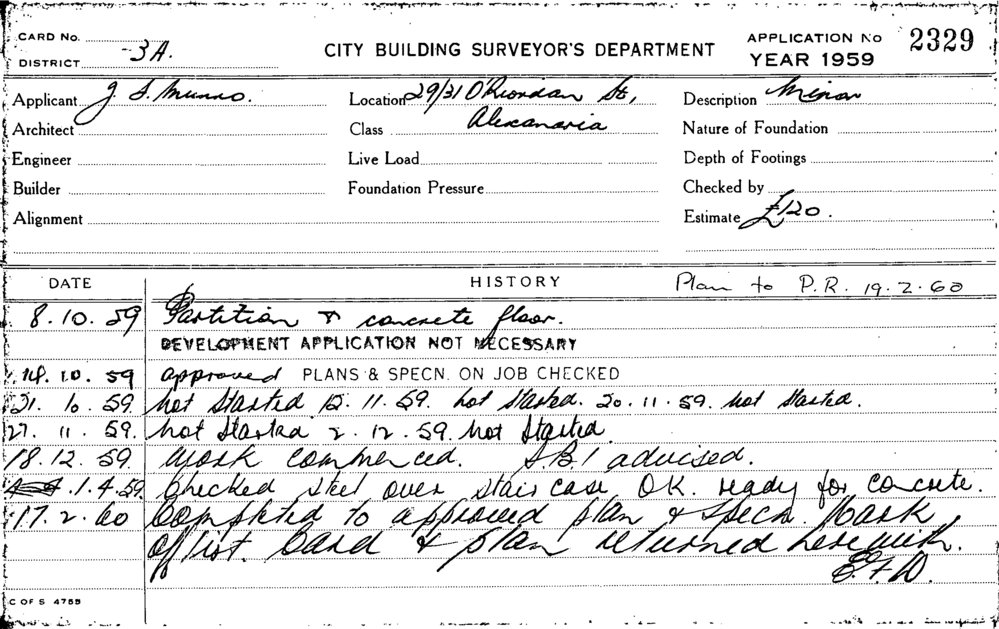 CARD No.
DISTRICT 3A.
CITY BUILDING SURVEYOR'S DEPARTMENT
APPLICATION No 2329
YEAR 1959
Applicant J S. Munro.
Location 29/31 O'Riordan St,
Description Minor
Architect
Class Alexandria
Nature of Foundation
Engineer
Live Load
Depth of Footings
Builder
Foundation Pressure
Checked by
Alignment
Estimate £120.
DATE HISTORY Plan to P.R. 19.2.60
8.10.59 Partition & concrete floor.
DEVELOPMENT APPLICATION NOT NECESSARY
14.10.59 approved PLANS & SPECN. ON JOB CHECKED
21.10.59 not started 12.11.59. not started. 20.11.59. not started.
27.11.59. not started 2.12.59. not started
18.12.59. work commenced. S.B.I advised.
.1.4.59. Checked steel over stair case OK. ready for concrete.
17.2.60 Completed to approved plan & specn. Mark
off list. Card & plan returned herewith.
E.F.D.
C OF S 4755